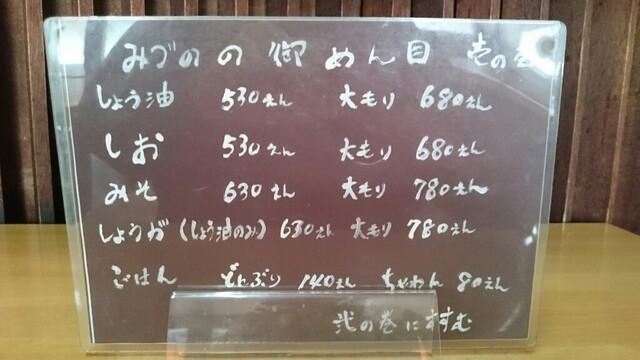 みづのの御めん目 壱の巻
しょう油 530えん 大もり 680えん
しお 530えん 大もり 680えん
みそ 630えん 大もり 780えん
しょうが(しょう油のみ) 630えん 大もり 780えん
ごはん どんぶり 140えん ちゃわん 80えん
弐の巻にすすむ